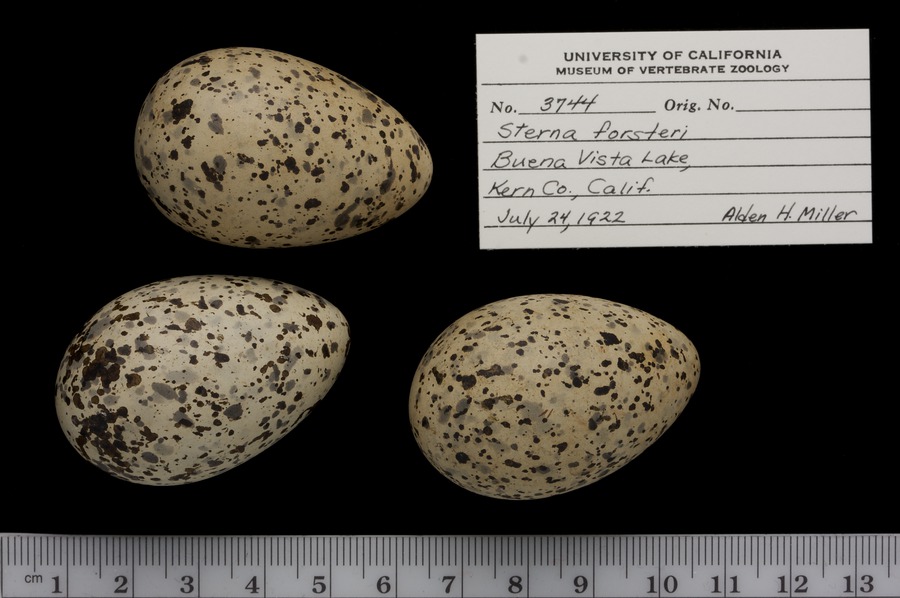 UNIVERSITY OF CALIFORNIA
MUSEUM OF VERTEBRATE ZOOLOGY
No. 3744 Orig. No.
Sterna forsteri
Buena Vista Lake,
Kern Co., Calif.
July 24, 1922 Alden H. Miller
cm 1 2 3 4 5 6 7 8 9 10 11 12 13